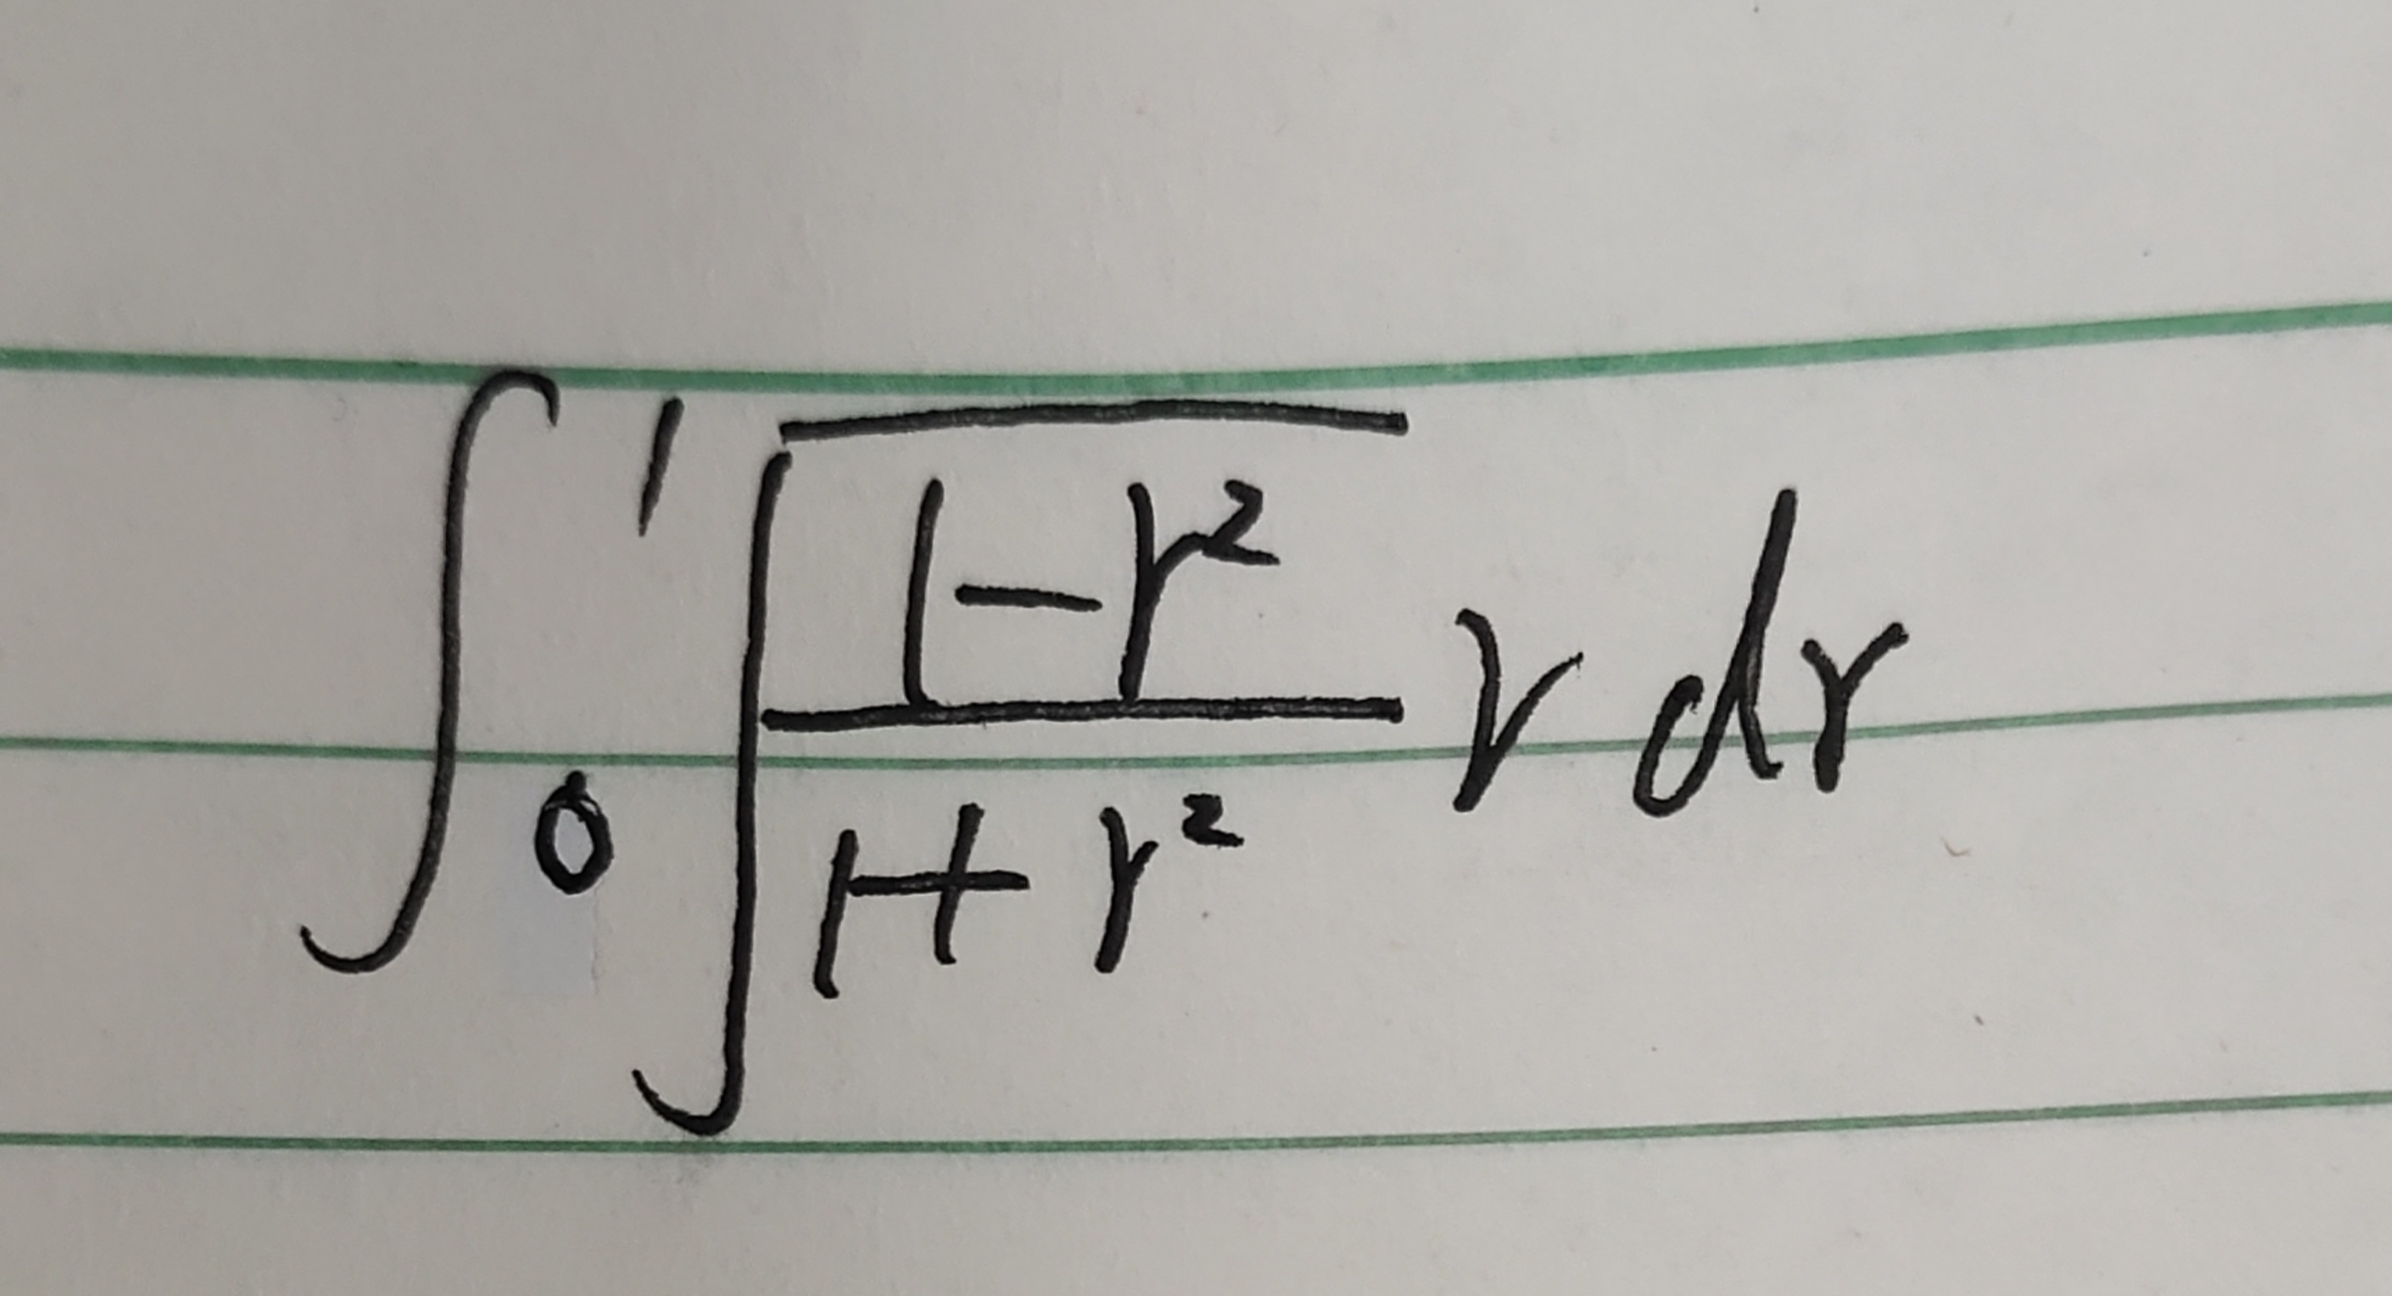 \int_0^1 \sqrt{\frac{1-r^2}{1+r^2}} r dr